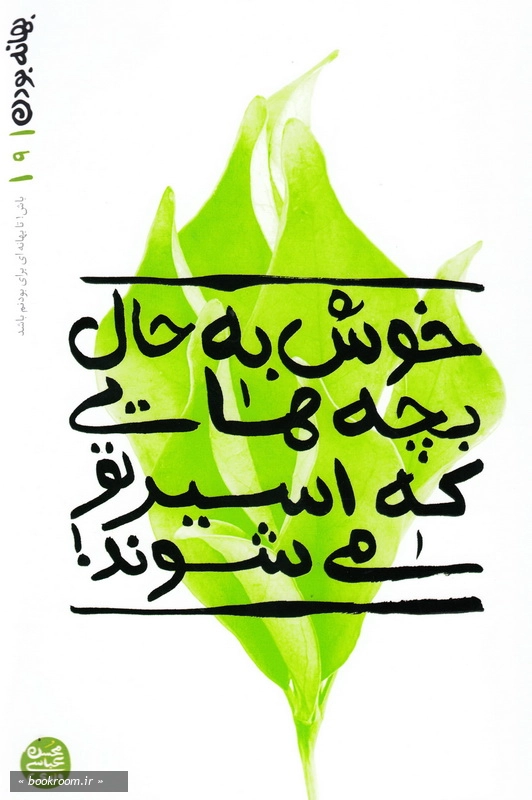 بهانه بودن
۱ ۹ ۱
باش! تا بهانه ای برای بودنم باشد
خوش به حال
بچه هایی
که اسیر تو
می شوند!
محسن
عباسی
« bookroom.ir »